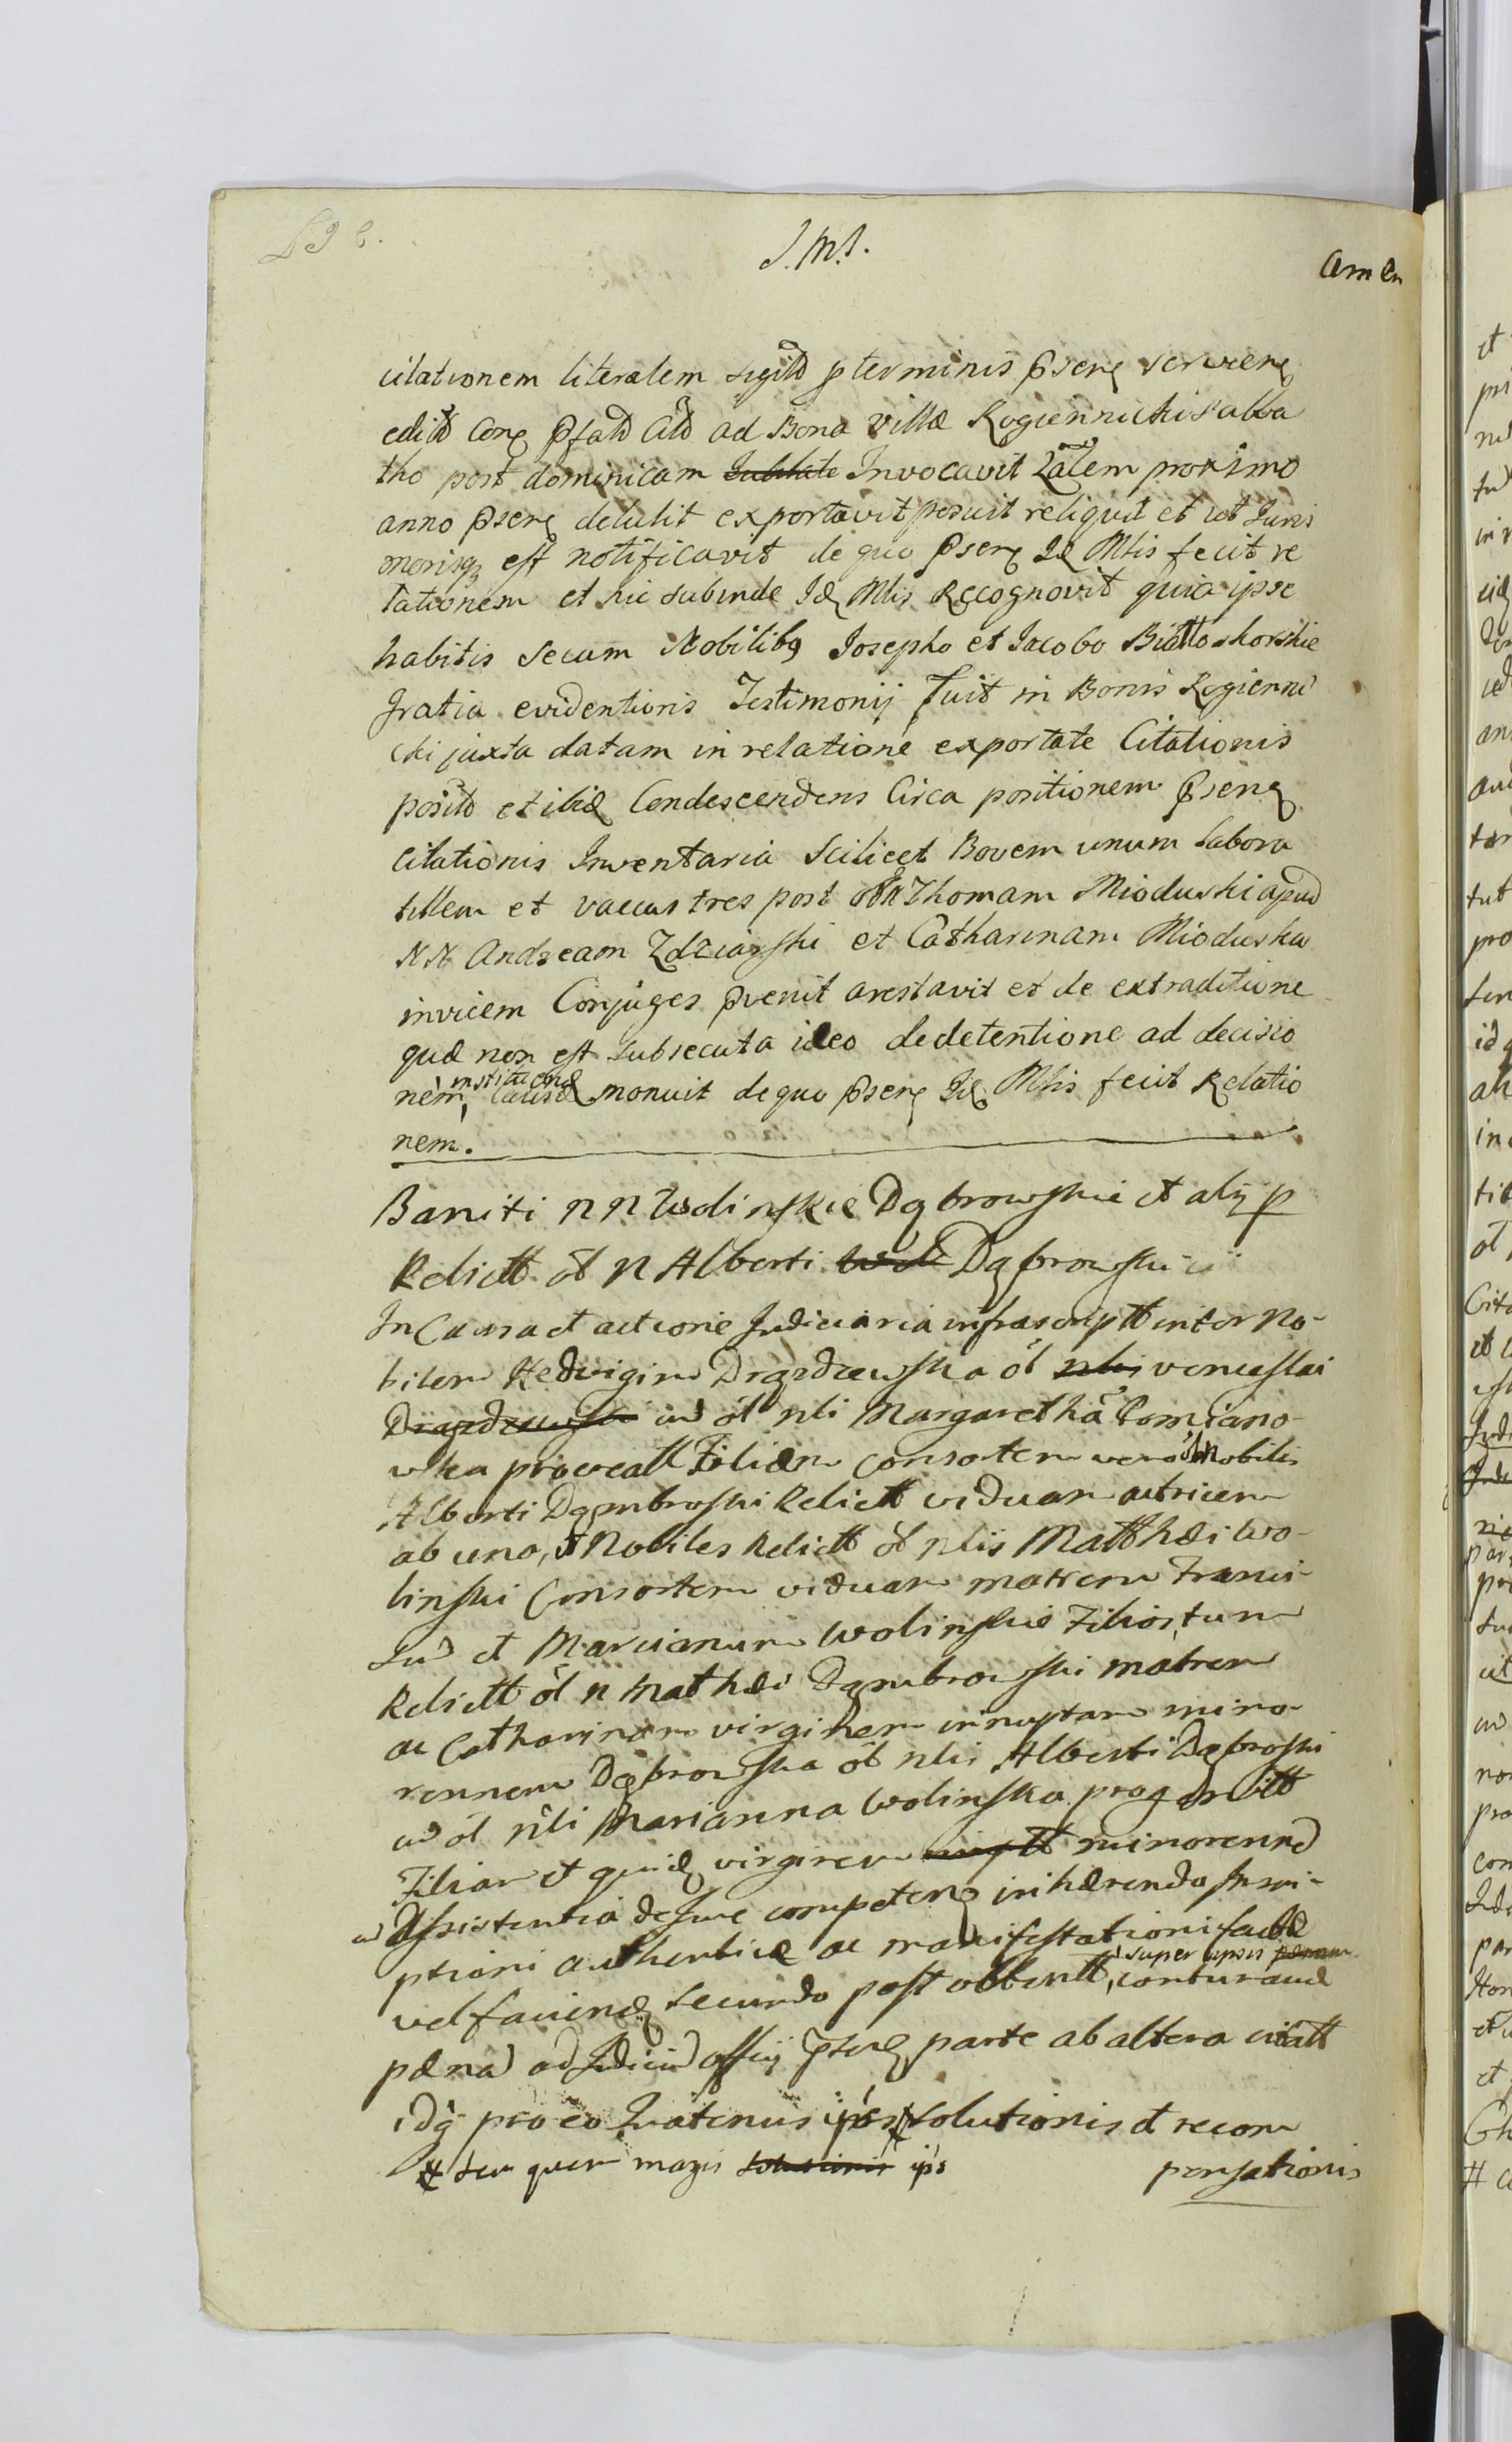 J.M.J.
Amen
citationem literalem sigilld p terminis Psenę servienę
editd Conę Pfatd Citd ad Bona villæ Rogiennicki Sabba
tho post dominicam Jubilate Invocavit Zalem proximo
anno Psenę detulit exportavit posuit reliquit et ut Juris
morisq est notificavit de quo Psenę Id Mlis fecit re
lationem et hic subinde Idę Mlis Recognovit quia ipse
habitis secum Nobilibg Josepho et Jacobo Biattoskorskie
gratia evidentioris Testimonij fuit in Bonis Rogienni
cki juxta datam in relatione exportate Citationis
positd et ibidę Condescendens Circa positionem Psenę
citationis Inventaria Scilicet Bovem unum labora
tillem et vaccas tres post olN Thomam Mioduski apud
N N Andream Zdziarski et Catharinam Mioduska
invicem Conjuges Pvenit arestavit et de extraditione
quæ non est subsecuta ideo de detentione ad decisio
nem, instituendę Causæ monuit de quo Psenę Idę Mlis fecit Relatio
nem.
Baniti n n Wolinskie Dąbrowskie et alij p
Relictt ól n Alberti Wol Dąbrowski
In Causa et actione Judiciaria infrascriptt inter No-
bilem Hedvigim Drązdzewska ól nli Venceslai
Drązdzewski cu ól nli Margaretha Pomiano-
wska procreatt Filiam consortem vero olN Nobilis
Alberti Dąmbroski Relictt viduam actricem
ab uno, et Nobiles Relictt ól nlis Matthæi Wo-
linski Consortem viduam matrem Franci-
scu et Marcianum Wolinskie Filios, tum
Relictt ól n Mathæi Dąmbrowski matrem
ac Catharinam virginem innuptam mino-
rennem Dąbrowska ól nlis Alberti Dąbroski
cu ól nli Marianna Wolinska progenitt
Filiam et quidę virginem nuptt minorennę
cu Assistentia de Jure competenę inhærendo Inscri-
ptioni authenticæ ac manifestationi factæ
vel faciendę secundo post obtentt, super ipsis pænam conturnaciæ
pænā ad Judiciū offij Psenę parte ab altera citatt
idq pro eo Quatenus ipsis # solutionis et recom
# seu quem magis solutionis ips
pensationis